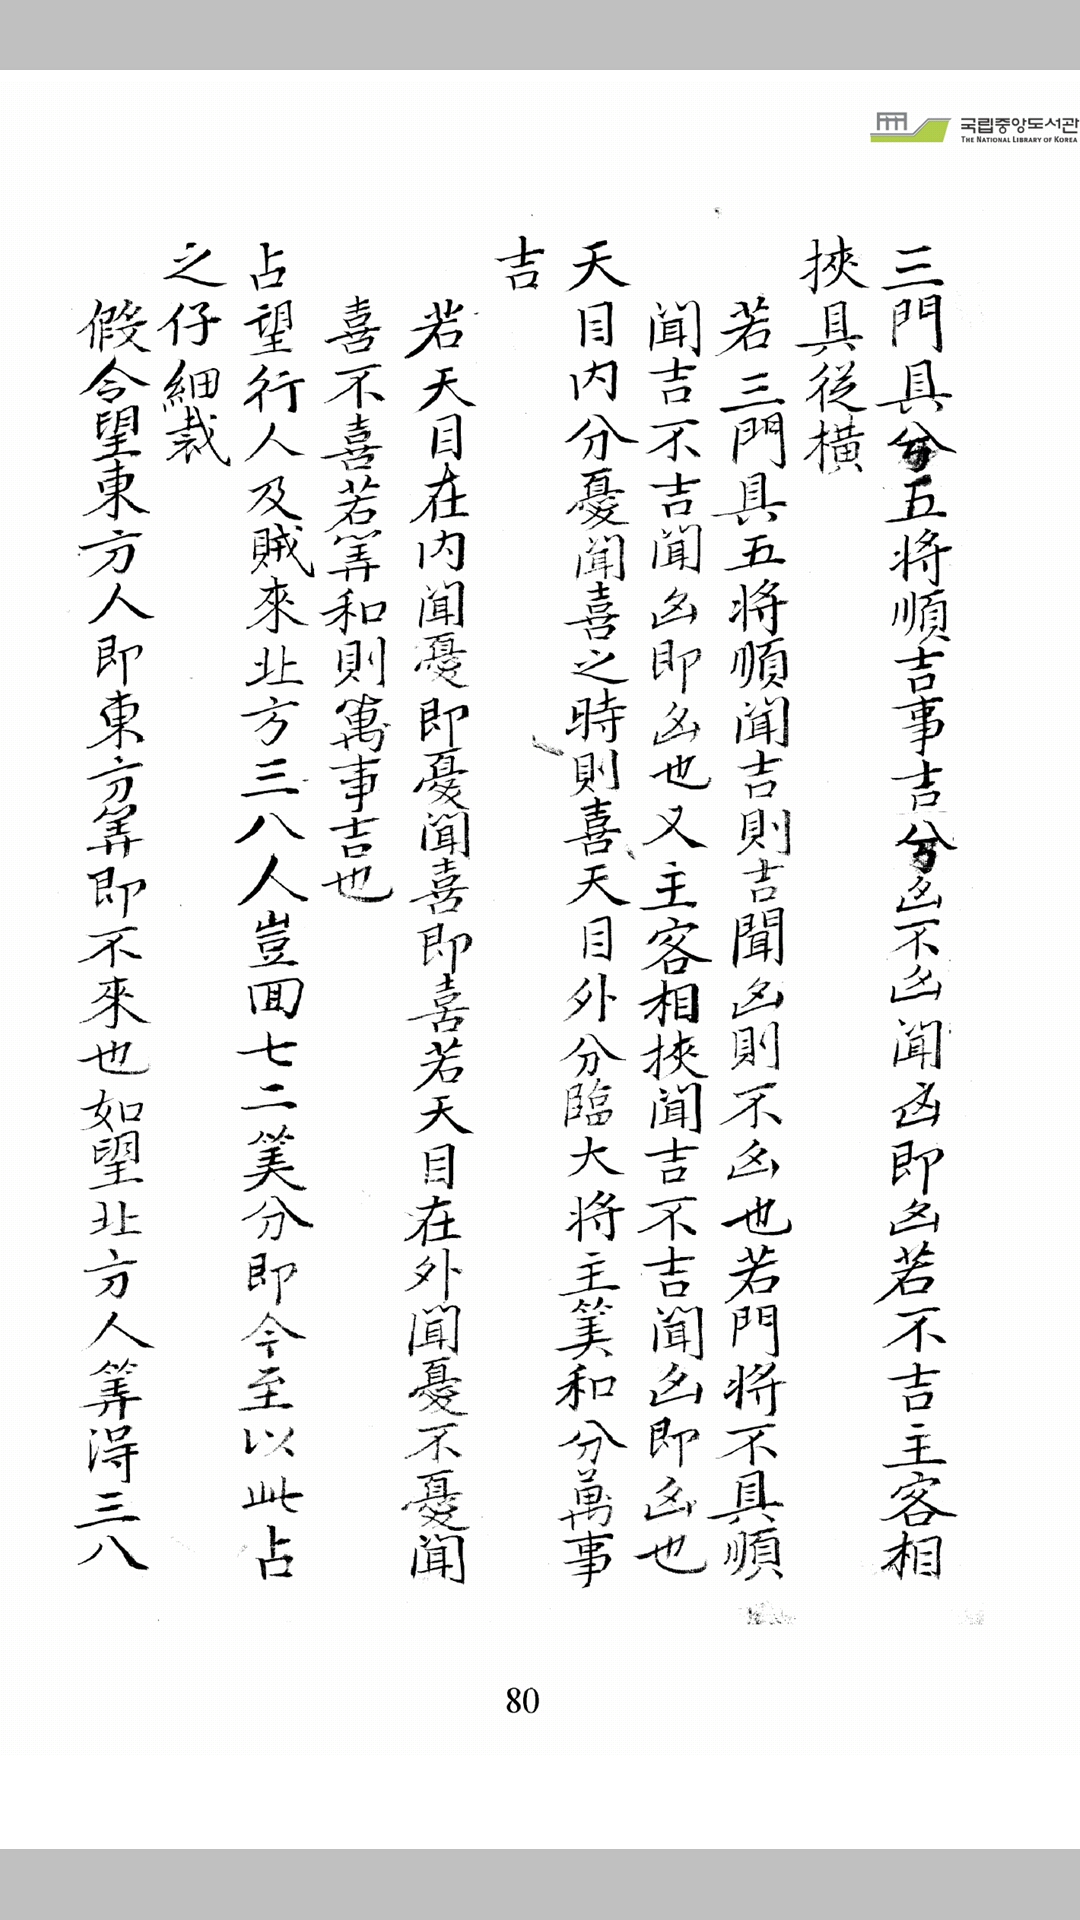 국립중앙도서관
THE NATIONAL LIBRARY OF KOREA
三門具兮五将順吉事吉兮凶不凶聞凶即凶若不吉主客相
挾具従橫
若三門具五将順聞吉則吉聞凶則不凶也若門将不具順
聞吉不吉聞凶即凶也又主客相挾聞吉不吉聞凶即凶也
天目内分憂聞喜之時則喜天目外分臨大将主筭和分萬事
吉
若天目在内聞憂即憂聞喜即喜若天目在外聞憂不憂聞
喜不喜若筭和則萬事吉也
占望行人及賊來北方三八人豈囬七二筭分即今至以此占
之仔細裁
假令望東方人即東方筭即不來也如望北方人筭得三八
80